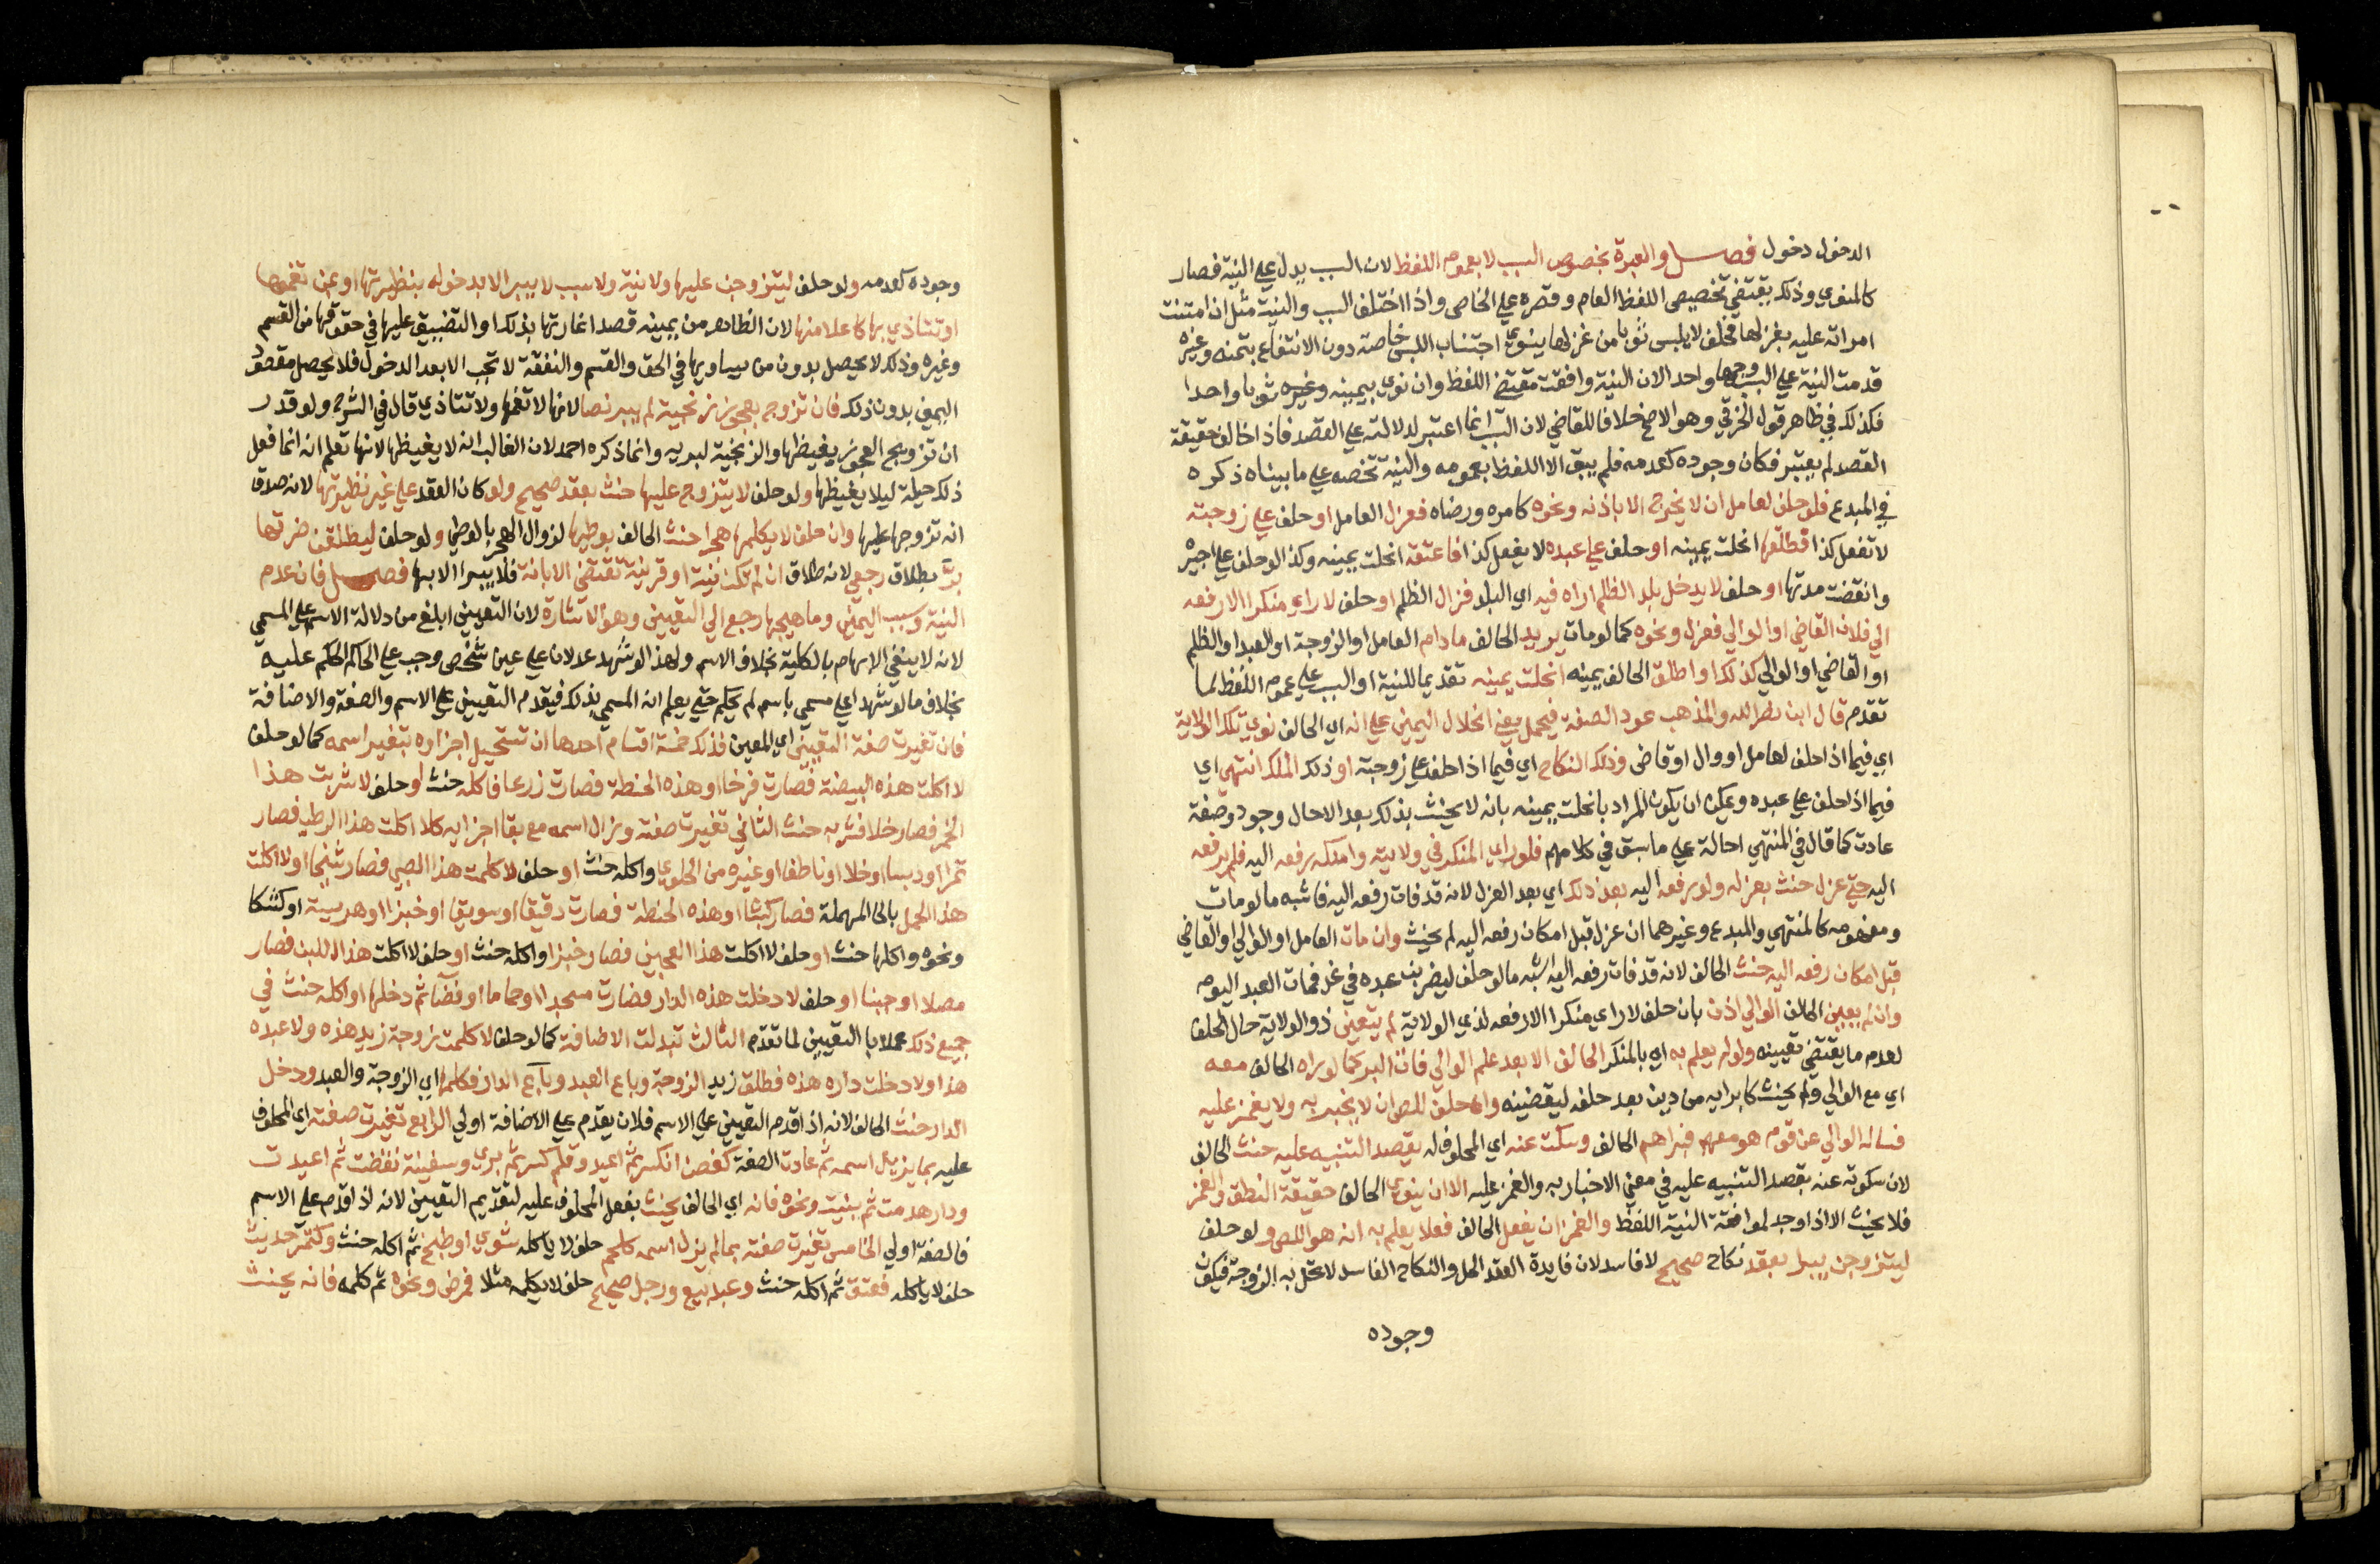 الدخول دخول فصل والعبرة بخصوص السبب لا بعموم اللفظ لان السبب يدل علي النية فصار
كالمنوي وذلك يقتضي تخصيص اللفظ العام وقصره علي الخاص واذا اختلف السبب والنية مثل ان امتنت
امراته عليه بغزلها فحلف لا يلبس ثوبا من غزلها ينوي اجتناب اللبس خاصة دون الانتفاع بثمنه وغيره
قدمت النية علي السبب وجها واحدا لان النية وافقت مقتضى اللفظ وان نوى بيمينه وغيره ثوبا واحدا
فكذلك في ظاهر قول الخرقي وهو الاصح خلافا للقاضي لان السبب انما اعتبر لدلالته علي القصد فاذا خالف حقيقة
القصد لم يعتبر فكان وجوده كعدمه فلم يبق الا اللفظ بعمومه والنية تخصه علي ما بيناه ذكره
في المبدع فلو حلف لعامل ان لا يخرج الا باذنه ونحوه كامره ورضاه فعزل العامل او حلف علي زوجته
لا تفعل كذا فطلقها انحلت يمينه او حلف علي عبده لا يفعل كذا فاعتقه انحلت يمينه وكذا لو حلف علي اجيره
وانقضت مدتها او حلف لا يدخل بلد الظلم اراه فيه اي البلد فزال الظلم او حلف لا راي منكرا الا رفعه
الي فلان القاضي او الوالي فعزل ونحوه كما لو مات يريد الحالف ما دام العامل او الزوجة او العبد او الظلم
او القاضي او الوالي كذلك او اطلق الحالف يمينه انحلت يمينه تقديما للنية او السبب علي عموم اللفظ لما
تقدم قال ابن نصر الله والمذهب عود الصفة فيحمل يعني انحلال اليمين علي انه اي الحالف نوى تلك الولاية
اي فيما اذا حلف لعامل او وال او قاض وذلك النكاح اي فيما اذا حلف علي زوجته او ذلك الملك انتهي اي
فيما اذا حلف علي عبده ويمكن ان يكون المراد بانحلت يمينه بانه لا يحنث بذلك بعد الاحال وجود صفة
عادت كما قال في المنتهي احالة علي ما سبق في كلامهم فلو راي المنكر في ولايته وامكنه رفعه اليه فلم يرفعه
اليه حتي عزل حنث بعزله ولو رفعه اليه بعد ذلك اي بعد العزل لانه قد فات رفعه اليه فاشبه ما لو مات
ومفهومه كالمنتهي والمبدع وغيرهما ان عزل قبل امكان رفعه اليه لم يحنث وان مات العامل او الوالي والقاضي
قبل امكان رفعه اليه حنث الحالف لانه قد فات رفعه اليه اشبه ما لو حلف ليضربن عبده في غد فمات العبد اليوم
وان لم يعين الحالف الوالي اذن بان حلف لا راي منكرا الا رفعه لذي الولاية لم يتعين ذو الولاية حال الحلف
لعدم ما يقتضي تعيينه ولو لم يعلم به اي بالمنكر الحالف الا بعد علم الوالي فات البر كما لو راه الحالف معه
اي مع الوالي ولم يحنث كابرايه من دين بعد حلفه ليقضينه وان حلف للص ان لا يخبر به ولا يغمز عليه
فساله الوالي عن قوم هو معهم فبراهم الحالف وسكت عنه اي المحلوف له يقصد التنبيه عليه حنث الحالف
لان سكوته عنه بقصد التنبيه عليه في معني الاخبار به والغمز عليه الا ان ينوي الحالف حقيقة النطق والغمز
فلا يحنث الا اذا وجد لموافقة النية اللفظ والغمز ان يفعل الحالف فعلا يعلم به انه هو اللص ولو حلف
ليتزوجن يبر بعقد نكاح صحيح لا فاسد لان فايدة العقد الحل والنكاح الفاسد لا تحل به الزوجة فيكون
وجوده
وجوده كعدمه ولو حلف ليتزوجن عليها ولا نية ولا سبب لا يبر الا بدخوله بنظيرتها او بمن تغمها
او تتاذي بها كاعلا منها لان الظاهر من يمينه قصد اغارتها بذلك او التضييق عليها في حقوقها من القسم
وغيره وذلك لا يحصل بدون من يساويها في الحق والقسم والنفقة لا تجب الا بعد الدخول فلا يحصل مقصود
اليمين بدون ذلك فان تزوج بعجوز زنجية لم يبر نصا لانها لا تغمها ولا تتاذي قال في الشرح ولو قدر
ان تزويج العجوز يغيضها والزنجية لبر به وانما ذكره احمد لان الغالب انه لا يغيظها لانها تعلم انه انما فعل
ذلك حيلة ليلا يغيظها ولو حلف لا يتزوج عليها حنث بعقد صحيح ولو كان العقد علي غير نظيرتها لانه صدق
انه تزوجها عليها وان حلف لا يكلمها هجرا حنث الحالف بوطيها لزوال الهجر بالوطي ولو حلف ليطلقن ضرتها
بر بطلاق رجعي لانه طلاق ان لم تكن نية او قرينة تقتضي الابانة فلا يبر الا بها فصل فان عدم
النية وسبب اليمين وما هيجها رجع الي التعيين وهو الاشارة لان التعيين ابلغ من دلالة الاسم علي المسمي
لانه لا ينفي الابهام بالكلية بخلاف الاسم ولهذا لو شهد عدلان علي عين شخص وجب علي الحاكم الحكم عليه
بخلاف ما لو شهدا علي مسمي باسم لم يحكم حتي يعلم ان المسمي بذلك فيقدم التعيين علي الاسم والصفة والاضافة
فان تغيرت صفة التعيين اي المعين فذلك خمسة اقسام احدها ان تستحيل اجزاوه بتغير اسمه كما لو حلف
لا اكلت هذه البيضة فصارت فرخا او هذه الحنطة فصارت زرعا فاكله حنث او حلف لا شربت هذا
الخمر فصار خلا فشربه حنث الثاني تغيرت صفته وزال اسمه مع بقا اجزايه كلا اكلت هذا الرطب فصار
تمرا او دبسا او خلا او ناطفا او غيره من الحلوي واكله حنث او حلف لا كلمت هذا الصبي فصار شيخا او لا اكلت
هذا الحمل بالحا المهملة فصار كبشا او هذه الحنطة فصارت دقيقا او سويقا او خبزا او هريسة او كشكا
ونحوه واكلها حنث او حلف لا اكلت هذا العجين فصار خبزا واكله حنث او حلف لا اكلت هذا اللبن فصار
مصلا او جبنا او حلف لا دخلت هذه الدار فصارت مسجدا او حماما او فضآ ثم دخلها او اكله حنث في
جميع ذلك عملا با التعيين لما تقدم الثالث تبدلت الاضافة كما لو حلف لا كلمت زوجة زيد هذه ولا عبده
هذا ولا دخلت داره هذه فطلق زيد الزوجة وباع العبد وباع الدار فكلمها اي الزوجة والعبد ودخل
الدار حنث الحالف لانه اذا قدم التعيين علي الاسم فلان يقدم علي الاضافة اولي الرابع تغيرت صفته اي المحلوف
عليه بما يزيل اسمه ثم عادت الصفة كغصن انكسر ثم اعيد وقلم كسر ثم بري وسفينة نقضت ثم اعيدت
ودار هدمت ثم بنيت ونحوه فانه اي الحالف يحنث بفعل المحلوف عليه لتقديم التعيين لانه اذا قدم علي الاسم
فالصفة اولي الخامس تغيرت صفته بما لم يزل اسمه كلحم حلف لا ياكله شوي او طبخ ثم اكله حنث وكتمر حديث
حلف لا ياكله فعتق ثم اكله حنث وعبد بيع ورجل صحيح حلف لا يكلمه مثلا فمرض ونحوه ثم كلمه فانه يحنث